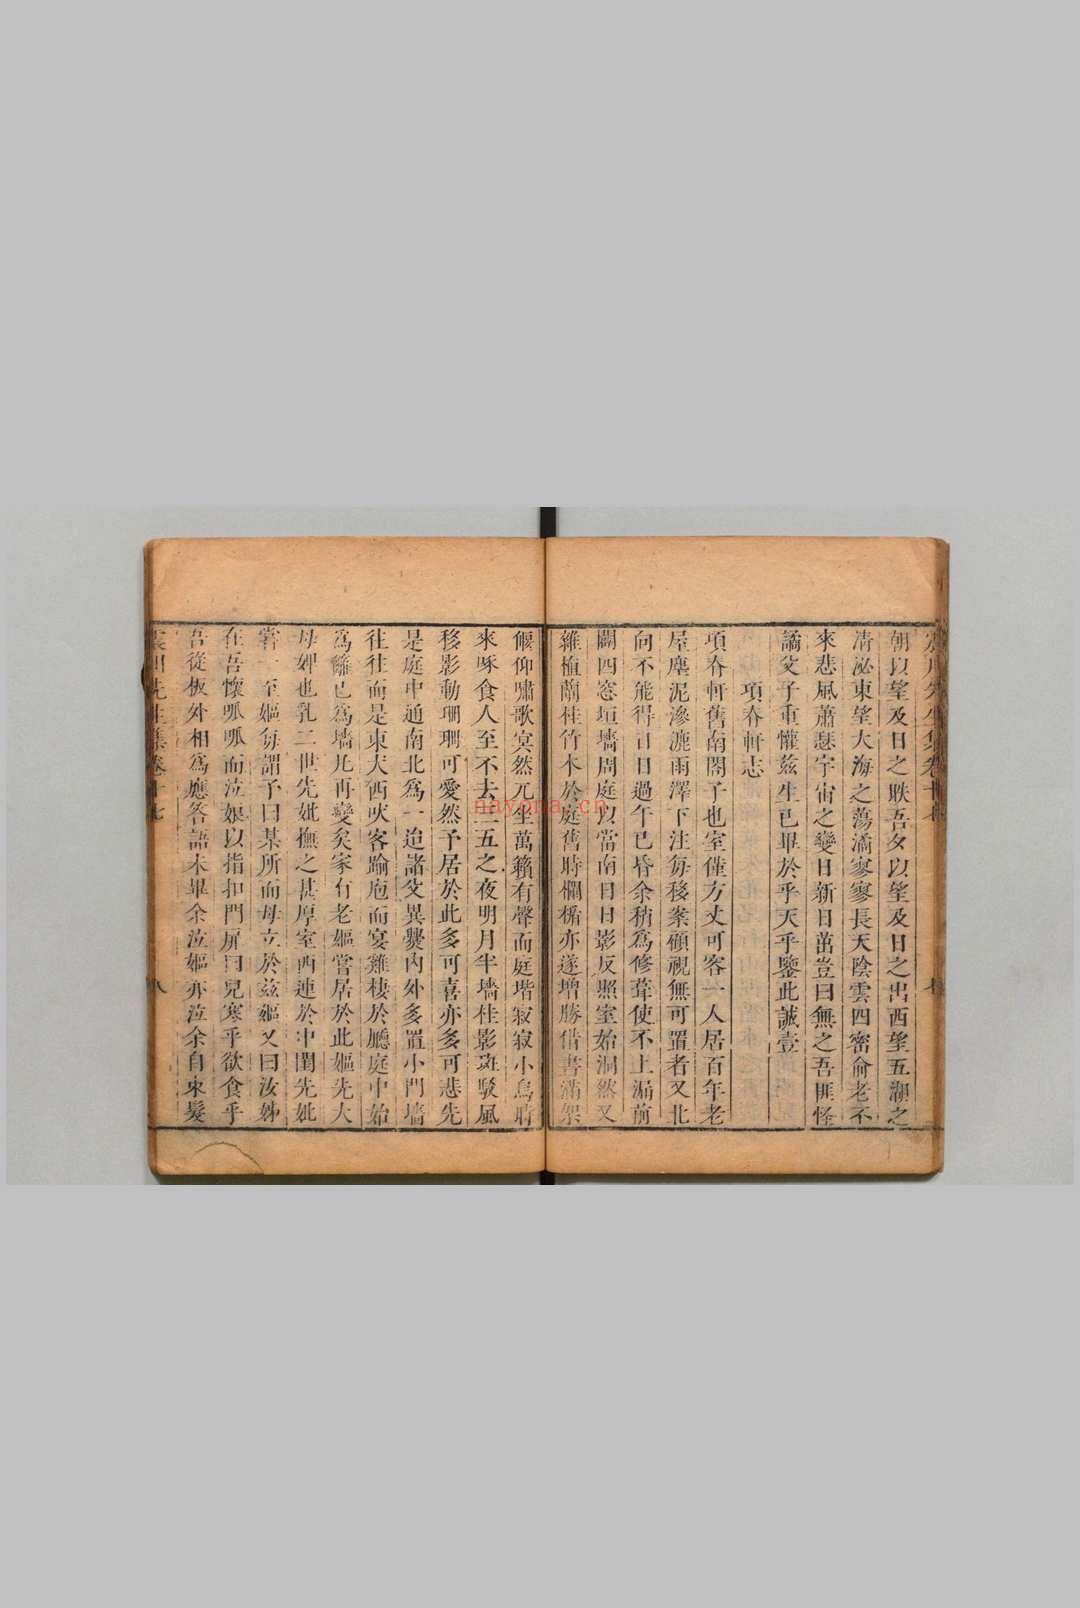 朝以望及日之昳吾夕以望及日之出西望五湖之
清泌東望大海之蕩潏寥寥長天陰雲四密俞老不
來悲風蕭瑟宇宙之變日新日茁豈曰無之吾匪怪
譎父子重懽茲生已畢於乎天乎鑒此誠壹
項脊軒志
項脊軒舊南閣子也室僅方丈可容一人居百年老
屋塵泥滲漉雨澤下注每移案顧視無可置者又北
向不能得日日過午已昏余稍為修葺使不上漏前
闢四窓垣墻周庭以當南日日影反照室始洞然又
雜植蘭桂竹木於庭舊時欄楯亦遂增勝借書滿架
偃仰嘯歌冥然兀坐萬籟有聲而庭堦寂寂小鳥時
來啄食人至不去三五之夜明月半墻桂影斑駁風
移影動珊珊可愛然予居於此多可喜亦多可悲先
是庭中通南北為一迨諸父異爨內外多置小門墻
往往而是東犬西吠客踰庖而宴雞棲於廳庭中始
為籬已為墻凡再變矣家有老嫗嘗居於此嫗先大
母婢也乳二世先妣撫之甚厚室西連於中閨先妣
嘗一至嫗每謂予曰某所而母立於茲嫗又曰汝姊
在吾懷呱呱而泣娘以指扣門扉曰兒寒乎欲食乎
吾從板外相為應答語未畢余泣嫗亦泣余自束髮
震川先生集卷十七
八
nayona.cn